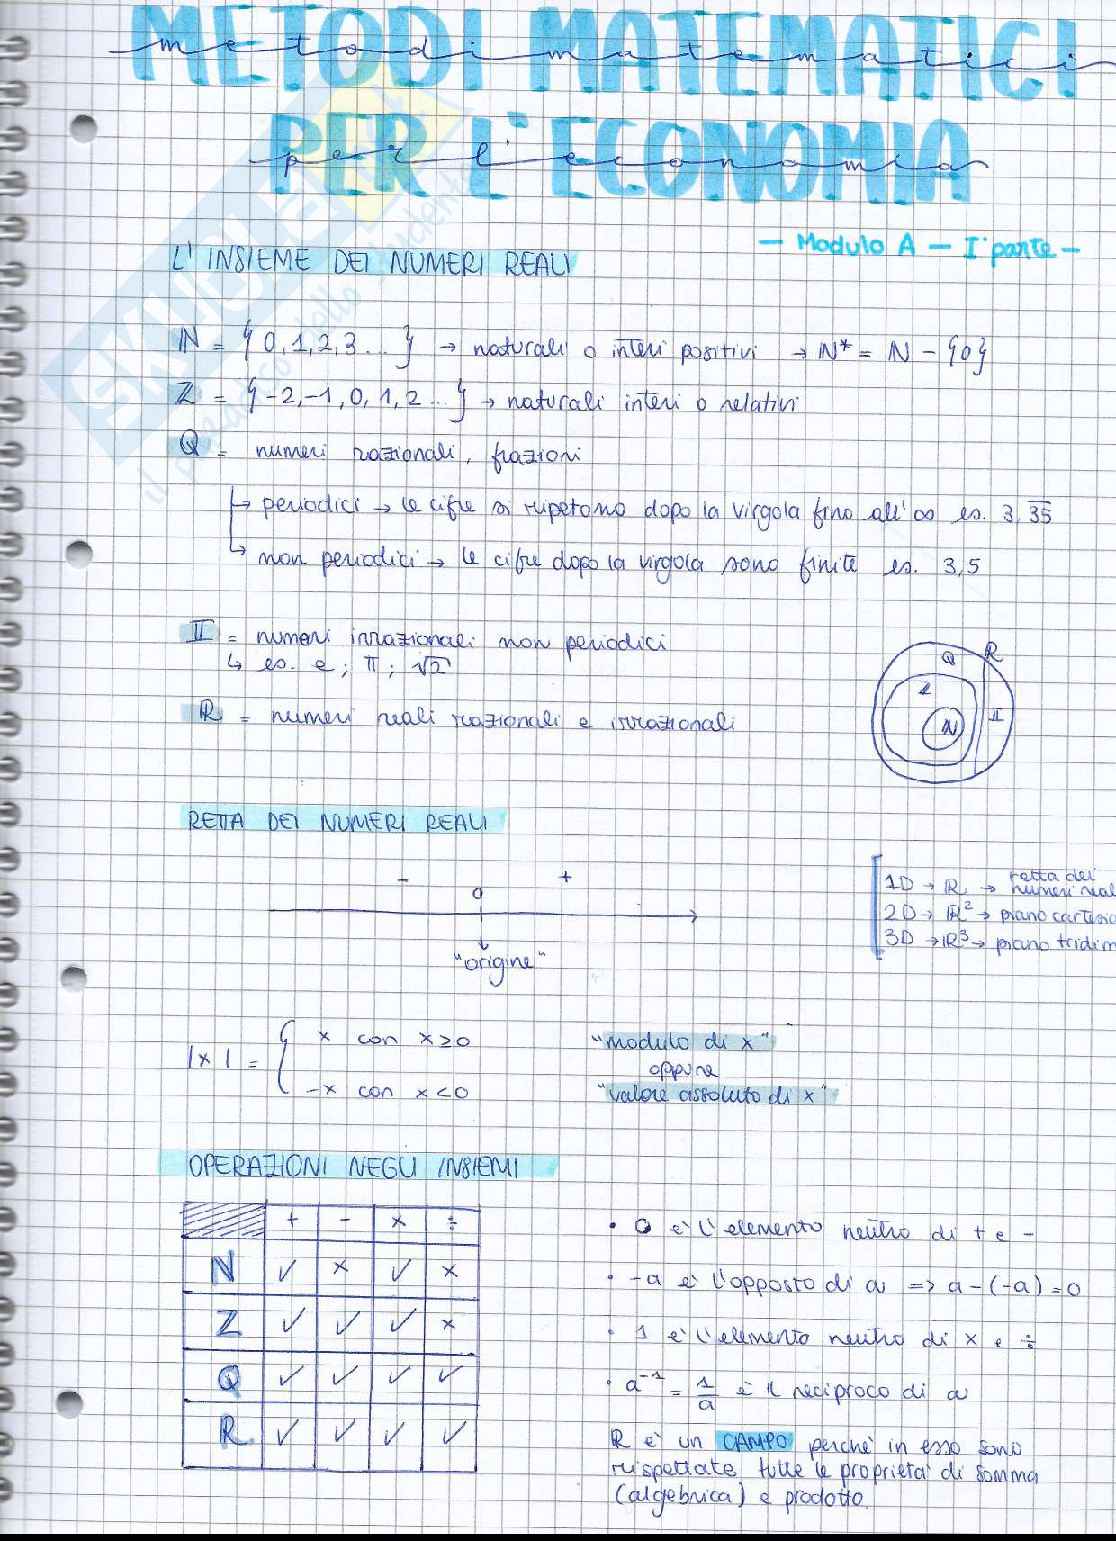 METODI MATEMATICI
metodi matematici
PER L'ECONOMIA
per l'economia
— Modulo A — Iª parte —
L'INSIEME DEI NUMERI REALI
N = { 0,1,2,3 ... } → naturali o interi positivi → N* = N - {0}
Z = { -2,-1,0,1,2 ... } → naturali interi o relativi
Q = numeri razionali, frazioni
↳ periodici → le cifre si ripetono dopo la virgola fino all'∞ es. 3,3̅5̅
↳ non periodici → le cifre dopo la virgola sono finite es. 3,5
II = numeri irrazionali non periodici
↳ es. e; π; √2
R = numeri reali razionali e irrazionali
Q R
Z
N II
RETTA DEI NUMERI REALI
- 0 +
"origine"
1D → R → retta dei numeri real
2D → R² → piano cartesia
3D → R³ → piano tridim
|x| = { x con x≥0
-x con x<0
"modulo di x"
oppure
"valore assoluto di x"
OPERAZIONI NEGLI INSIEMI
+ - × ÷
N ✓ × ✓ ×
Z ✓ ✓ ✓ ×
Q ✓ ✓ ✓ ✓
R ✓ ✓ ✓ ✓
• 0 è l'elemento neutro di + e -
• -a è l'opposto di a => a-(-a)=0
• 1 è l'elemento neutro di × e ÷
• a⁻¹ = 1/a è il reciproco di a
R è un CAMPO perché in esso sono
rispettate tutte le proprietà di somma
(algebrica) e prodotto.